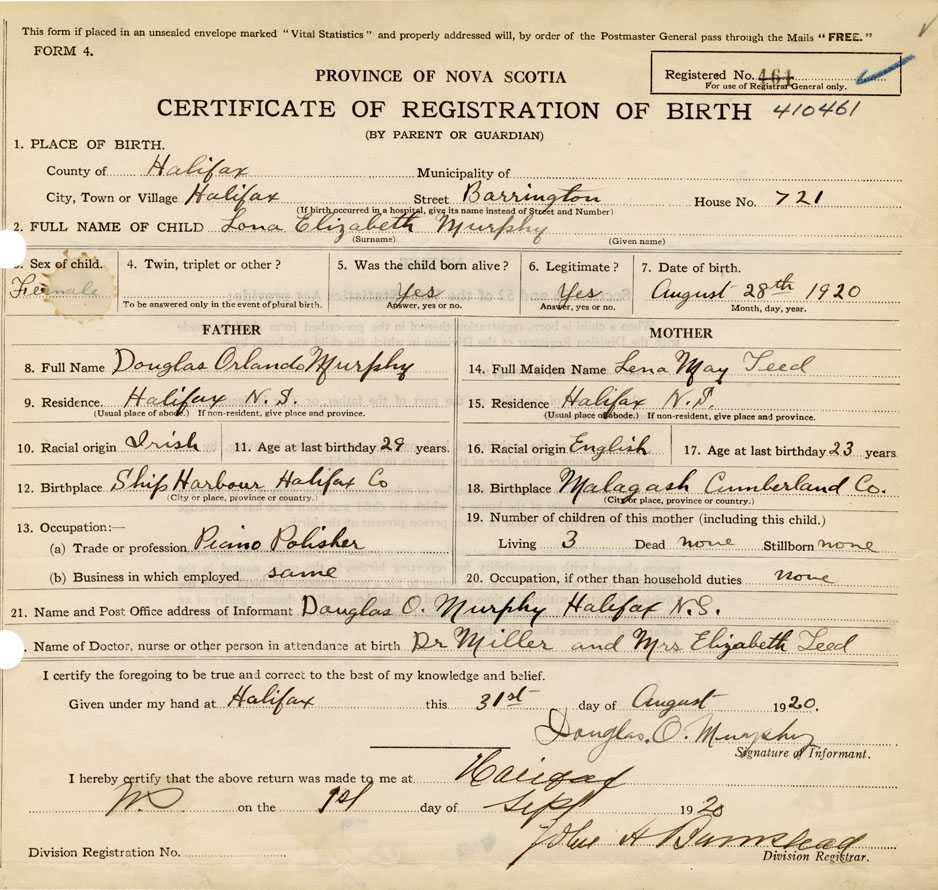 This form if placed in an unsealed envelope marked "Vital Statistics" and properly addressed will, by order of the Postmaster General pass through the Mails "FREE."
FORM 4.
Registered No. 461
For use of Registrar General only.
PROVINCE OF NOVA SCOTIA
CERTIFICATE OF REGISTRATION OF BIRTH 410461
(BY PARENT OR GUARDIAN)
1. PLACE OF BIRTH.
County of Halifax Municipality of
City, Town or Village Halifax Street Barrington House No. 721
(If birth occurred in a hospital, give its name instead of Street and Number)
2. FULL NAME OF CHILD Lona Elizabeth Murphy
(Surname) (Given name)
Sex of child. 4. Twin, triplet or other? 5. Was the child born alive? 6. Legitimate? 7. Date of birth.
Female Yes Yes August 28th 1920
To be answered only in the event of plural birth. Answer, yes or no. Answer, yes or no. Month, day, year.
FATHER MOTHER
8. Full Name Douglas Orlando Murphy 14. Full Maiden Name Lena May Teed
9. Residence Halifax N.S. 15. Residence Halifax N.S.
(Usual place of abode.) If non-resident, give place and province. (Usual place of abode.) If non-resident, give place and province.
10. Racial origin Irish 11. Age at last birthday 29 years 16. Racial origin English 17. Age at last birthday 23 years
12. Birthplace Ship Harbour Halifax Co 18. Birthplace Malagash Cumberland Co.
(City or place, province or country.) (City or place, province or country.)
13. Occupation:— 19. Number of children of this mother (including this child.)
(a) Trade or profession Piano Polisher Living 3 Dead none Stillborn none
(b) Business in which employed same 20. Occupation, if other than household duties none
21. Name and Post Office address of Informant Douglas O. Murphy Halifax N.S.
. Name of Doctor, nurse or other person in attendance at birth Dr Miller and Mrs Elizabeth Teed
I certify the foregoing to be true and correct to the best of my knowledge and belief.
Given under my hand at Halifax this 31st day of August 1920.
Douglas. O. Murphy
Signature of Informant.
I hereby certify that the above return was made to me at Halifax
NS on the 1st day of Sept 1920
John A Barnstead
Division Registrar.
Division Registration No.